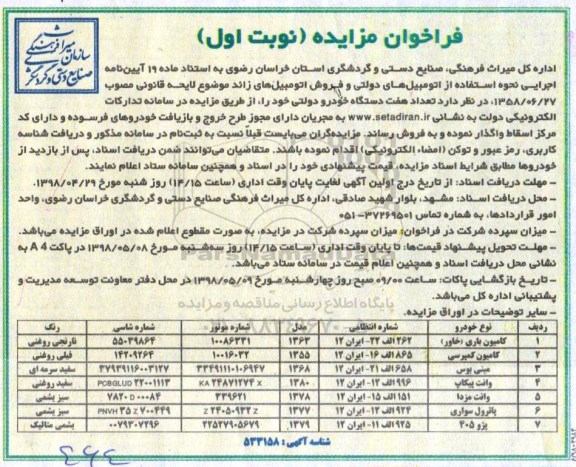 سازمان میراث فرهنگی
صنایع دستی و گردشگری
فراخوان مزایده (نوبت اول)
اداره کل میراث فرهنگی، صنایع دستی و گردشگری استان خراسان رضوی به استناد ماده ۱۹ آیین‌نامه
اجرایی نحوه استفاده از اتومبیل‌های دولتی و فروش اتومبیل‌های زائد موضوع لایحه قانونی مصوب
۱۳۵۸/۰۶/۲۷، در نظر دارد تعداد هفت دستگاه خودرو دولتی خود را، از طریق مزایده در سامانه تدارکات
الکترونیکی دولت به نشانی www.setadiran.ir به مجریان دارای مجوز طرح خروج و بازیافت خودروهای فرسوده و دارای کد
مرکز اسقاط واگذار نموده و به فروش رساند. مزایده‌گران می‌بایست قبلاً نسبت به ثبت‌نام در سامانه مذکور و دریافت شناسه
کاربری، رمز عبور و توکن (امضاء الکترونیکی) اقدام نموده باشند. متقاضیان می‌توانند ضمن دریافت اسناد، پس از بازدید از
خودروها مطابق شرایط اسناد مزایده، قیمت پیشنهادی خود را در اسناد و همچنین سامانه ستاد اعلام نمایند.
- مهلت دریافت اسناد: از تاریخ درج اولین آگهی لغایت پایان وقت اداری (ساعت ۱۴/۱۵) روز شنبه مورخ ۱۳۹۸/۰۴/۲۹.
- محل دریافت اسناد: مشهد، بلوار شهید صادقی، اداره کل میراث فرهنگی صنایع دستی و گردشگری خراسان رضوی، واحد
امور قراردادها، به شماره تماس ۳۷۲۶۹۵۰۱-۰۵۱
- میزان سپرده شرکت در فراخوان: میزان سپرده شرکت در مزایده، به صورت مقطوع اعلام شده در اوراق مزایده می‌باشد.
- مهلت تحویل پیشنهاد قیمت‌ها: تا پایان وقت اداری (ساعت ۱۴/۱۵) روز سه‌شنبه مورخ ۱۳۹۸/۰۵/۰۸ در پاکت A 4 به
نشانی محل دریافت اسناد و همچنین اعلام قیمت در سامانه ستاد می‌باشد.
- تاریخ بازگشایی پاکات: ساعت ۰۹/۰۰ صبح روز چهارشنبه مورخ ۱۳۹۸/۰۵/۰۹ در محل دفتر معاونت توسعه مدیریت و
پشتیبانی اداره کل می‌باشد.
- سایر توضیحات در اوراق مزایده.
ردیف نوع خودرو شماره انتظامی مدل شماره موتور شماره شاسی رنگ
۱ کامیون باری (خاور) ۲۶۲ الف ۲۲- ایران ۱۲ ۱۳۶۲ ۱۰۰۸۶۳۳۱ ۵۵۰۳۹۸۶۴ نارنجی روغنی
۲ کامیون کمپرسی ۸۶۵ الف ۱۶- ایران ۱۲ ۱۳۵۵ ۱۰۰۱۶۰۳۲ ۱۴۲۰۹۲۶۴ فیلی روغنی
۳ مینی بوس ۶۵۸ الف ۲۱- ایران ۱۲ ۱۳۶۸ ۳۳۴۹۱۱۱۰-۱۰۶۹۴۷ ۳۷۹۳۹۱۱۶۰۰۳۱۲۷ سفید سرمه ای
۴ وانت پیکاپ ۹۹۶ الف ۱۲- ایران ۱۲ ۱۳۸۰ KA ۲۴۸۷۱۲۷۴ X PCBGLUD ۲۲۰۰۱۱۱۳ سفید روغنی
۵ وانت مزدا ۱۵۱ الف ۱۵- ایران ۱۲ ۱۳۷۸ ۳۳۹۶۲۱ ۷۸۲۰ D ۰۰۰۸۴ سبز یشمی
۶ پاترول سواری ۹۲۴ الف ۱۳- ایران ۱۲ ۱۳۷۷ Z ۲۴۰۵۰۹۳۲ Z PNVH ۳۵ Z ۷۰۰۴۴۹ سبز یشمی
۷ پژو ۴۰۵ ۹۲۵ الف ۱۱- ایران ۱۲ ۱۳۷۹ ۲۲۵۲۷۹۰۵۶۷۹ ۰۰۷۹۳۰۷۲۹۶ یشمی متالیک
شناسه آگهی: ۵۳۳۱۵۸